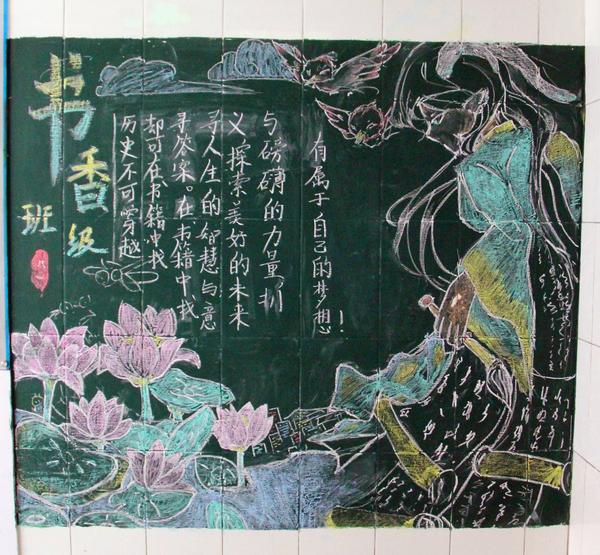 书香
班级
历史不可穿越
却可在书籍中找
寻答案。在书籍中找
寻人生的智慧与意
义,探索美好的未来
与磅礴的力量,拥
有属于自己的梦想!